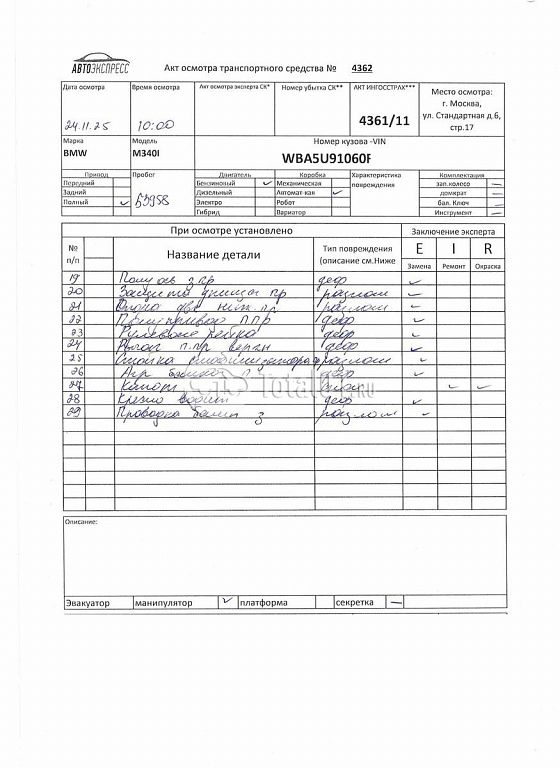 АВТОЭКСПРЕСС
Акт осмотра транспортного средства № 4362
Дата осмотра Время осмотра Акт осмотра эксперта СК* Номер убытка СК** АКТ ИНГОССТРАХ*** Место осмотра:
г. Москва,
24.11.25 10:00 4361/11 ул. Стандартная д.6,
стр.17
Марка Модель Номер кузова -VIN
BMW M340I WBA5U91060F
Привод Пробег Двигатель Коробка Характеристика повреждения Комплектация
Передний Бензиновый ✓ Механическая зап.колесо —
Задний Дизельный Автомат-кая ✓ домкрат —
Полный ✓ Электро Робот бал. Ключ —
Гибрид Вариатор Инструмент —
При осмотре установлено Заключение эксперта
№ п/п Название детали Тип повреждения (описание см.Ниже E I R
Замена Ремонт Окраска
19 Полуось з пр деф ✓
20 Защита днища пр разлом ✓
21 Опора двс пр разлом ✓
22 деф ✓
23 Рулевая рейка деф ✓
24 деф ✓
25 Стойка стабилизатора разлом ✓
26 деф ✓
27 Капот ✓ ✓
28 Кресло водит деф ✓
29 Проводка з разлом ✓
Total
.RU
Описание:
Эвакуатор манипулятор ✓ платформа секретка —